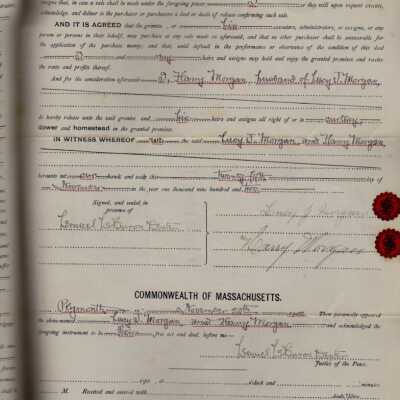 signs that, in case a sale shall be made under the foregoing power or they will upon request execute,
acknowledge, and deliver to the purchaser or purchasers a deed or deeds of release confirming such sale.
AND IT IS AGREED that the grantee, or his executors, administrators, or assigns, or any
person or persons in their behalf, may purchase at any sale made as aforesaid, and that no other purchaser shall be answerable for
the application of the purchase money; and that, until default in the performance or observance of the condition of this deed
and my heirs and assigns may hold and enjoy the granted premises and receive
the rents and profits thereof.
And for the consideration aforesaid I, Harry Morgan, husband of Lucy J. Morgan,
do hereby release unto the said grantee and his heirs and assigns all right of or to
dower and homestead in the granted premises.
IN WITNESS WHEREOF we the said Lucy J. Morgan and Harry Morgan
hereunto set our hands and seals this twenty fifth day of
November in the year one thousand nine hundred and
Signed, and sealed in
presence of
Lemuel
Lucy J. Morgan
Harry Morgan
COMMONWEALTH OF MASSACHUSETTS.
Plymouth November Then personally appeared
the above-named Lucy J. Morgan and Harry Morgan and acknowledged the
foregoing instrument to be their free act and deed, before me—
Lemuel
Justice of the Peace.
190 at o'clock and minutes
M. Received and entered with